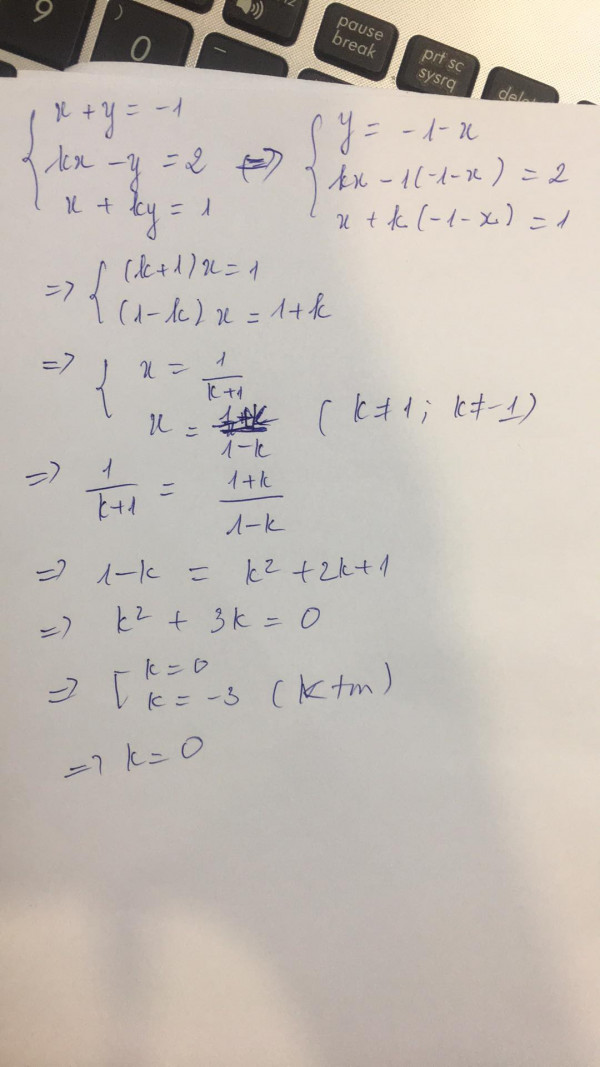 9
)
0
–
pause
break
prt sc
sysrq
delet
x + y = -1
kx - y = 2
x + ky = 1
<=>
y = -1 - x
kx - 1(-1 - x) = 2
x + k(-1 - x) = 1
=> (k+1)x = 1
(1-k)x = 1+k
=> x = 1/(k+1)
x = 1+k/(1-k) (k ≠ 1; k ≠ -1)
=> 1/(k+1) = (1+k)/(1-k)
=> 1-k = k² + 2k + 1
=> k² + 3k = 0
=> [ k = 0
k = -3 (ktm)
=> k = 0